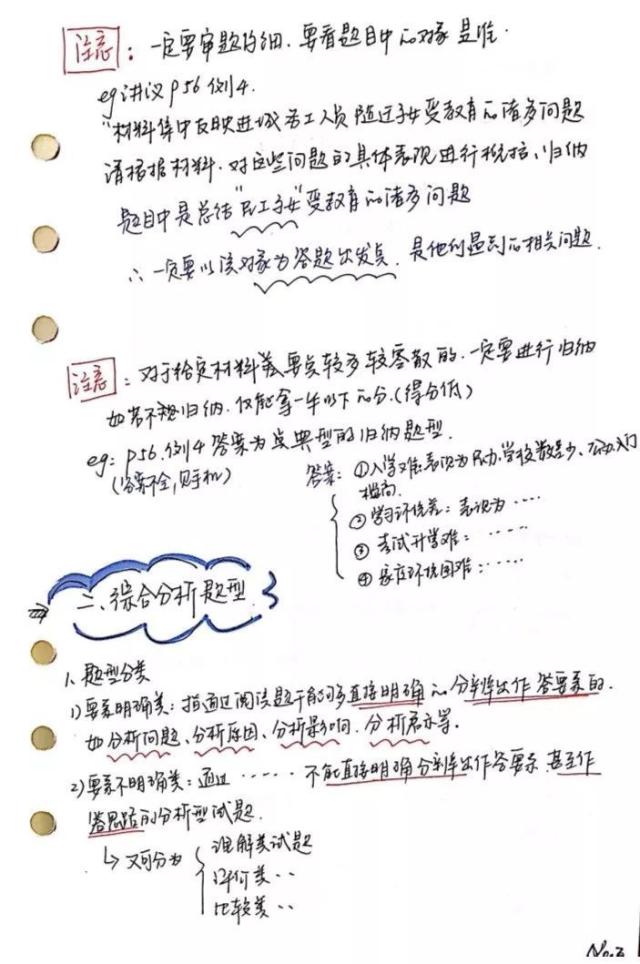 注意：一定要审题仔细，要看题目中的对象是谁.
eg 讲议 P56 例4.
"材料集中反映进城务工人员随迁子女受教育的诸多问题
请根据材料，对这些问题的具体表现进行概括、归纳
题目中是总结"民工子女"受教育的诸多问题
∴一定要以该对象为答题出发点，是他们遇到的相关问题.
注意：对于给定材料 要点较多较零散的，一定要进行归纳
如若不规归纳，仅能拿一半以下的分.(得分低)
eg：P56.例4 答案为点典型的归纳题型.
(答案不全,见手机)
答案：①入学难：表现为 学校数量少、入门
槛高.
②学习环境差：表现为……
③考试升学难：……
④家庭环境困难：……
二、综合分析题型
1、题型分类
1)要素明确类：指通过阅读题干能够直接明确的分辨出作答要素的.
如分析问题、分析原因、分析影响、分析启示等.
2)要素不明确类：通过…… 不能直接明确分辨出作答要素,甚至作
答思路的分析型试题.
↳又可分为
理解类试题
评价类··
比较类··
No.3